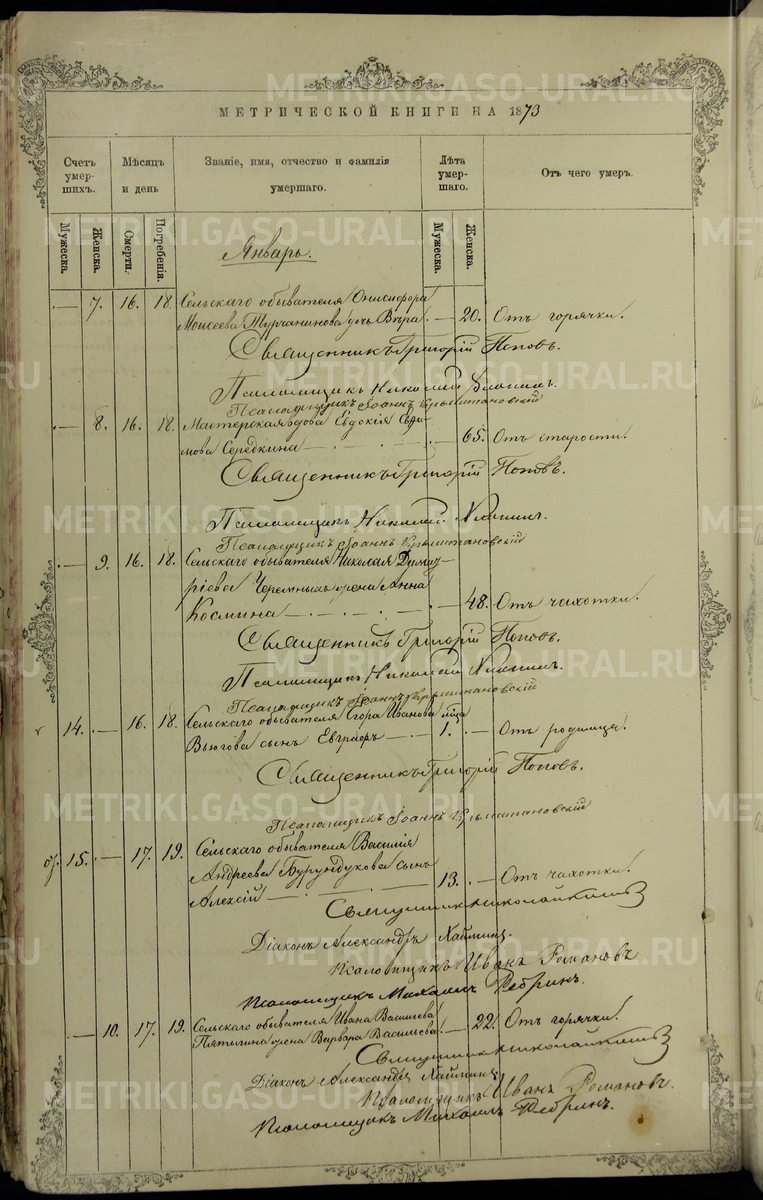 МЕТРИЧЕСКОЙ КНИГИ НА 1873
Счетъ умер- шихъ.
Мѣсяцъ и день
Званіе, имя, отчество и фамилія умершаго.
Лѣта умер- шаго.
Отъ чего умеръ.
Мужеска.
Женска.
Смерти.
Погребенія.
Мужеска.
Женска.
Январь.
7. 16. 18. Сельскаго обывателя Онисифора
Моисеева Турчанинова дочь Вѣра. — 20. Отъ горячки.
Священникъ Григорій Поповъ.
Псаломщикъ Николай
Псаломщикъ Іоаннъ Крыжановскій
8. 16. 18. Мастерская вдова Евдокія Ефи-
мова Середкина — 65. Отъ старости.
Священникъ Григорій Поповъ.
Псаломщикъ Николай
Псаломщикъ Іоаннъ Крыжановскій
9. 16. 18. Сельскаго обывателя Николая Димит-
ріева Черемныхъ жена Анна
Космина — 48. Отъ чахотки.
Священникъ Григорій Поповъ.
Псаломщикъ Николай
Псаломщикъ Іоаннъ Крыжановскій
14. — 16. 18. Сельскаго обывателя Егора Иванова
Вьюгова сынъ Евграфъ — 1. — Отъ родимца.
Священникъ Григорій Поповъ.
Псаломщикъ Іоаннъ Крыжановскій
15. — 17. 19. Сельскаго обывателя Василія
Андреева Бурундукова сынъ
Алексій — 13. — Отъ чахотки.
Священникъ Николай
Діаконъ Александръ Хаймин
Псаломщикъ Иванъ Романовъ
Псаломщикъ Михаилъ Ребринъ.
10. 17. 19. Сельскаго обывателя Ивана Васильева
Пятыгина жена Варвара Васильева — 22. Отъ горячки.
Священникъ Николай
Діаконъ Александръ Хаймин
Псаломщикъ Иванъ Романовъ.
Псаломщикъ Михаилъ Ребринъ.
METRIKI.GASO-URAL.RU